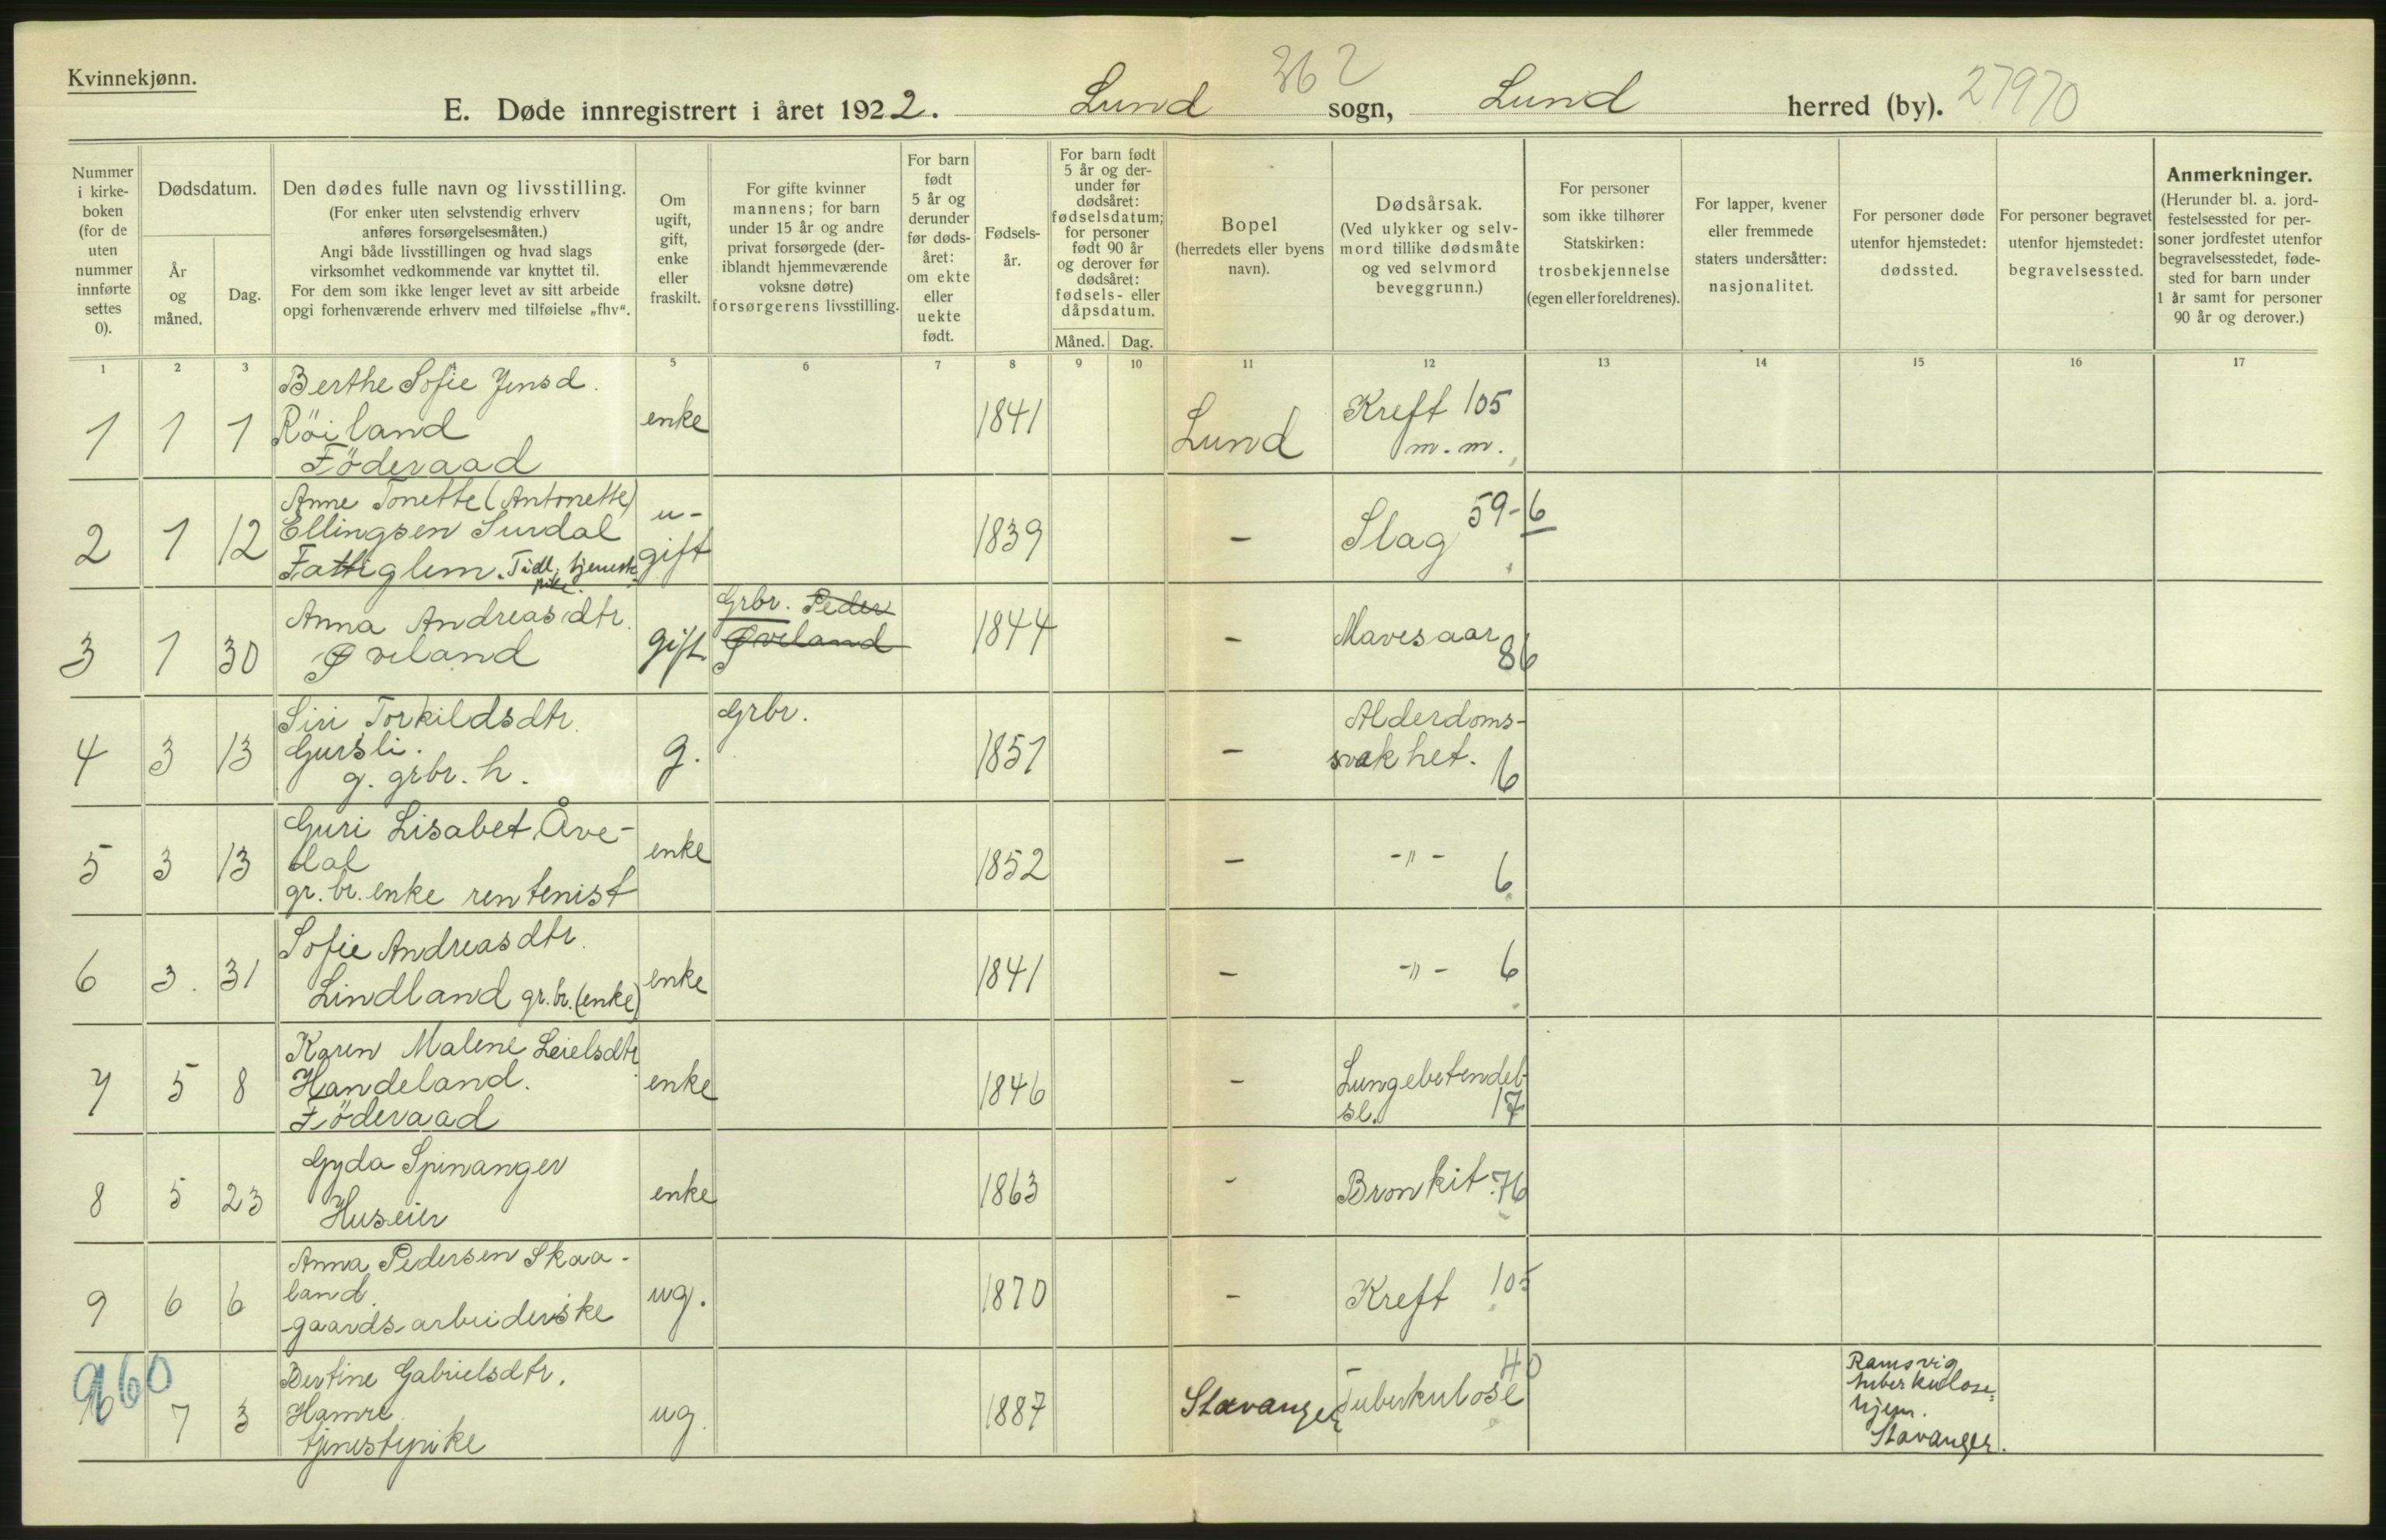 Kvinnekjønn.
362
E. Døde innregistrert i året 1922. Lund sogn, Lund herred (by). 27970
Nummer
i kirke-
boken
(for de
uten
nummer
innførte
settes
0).
Dødsdatum.
År
og
måned.
Dag.
Den dødes fulle navn og livsstilling.
(For enker uten selvstendig erhverv
anføres forsørgelsesmåten.)
Angi både livsstillingen og hvad slags
virksomhet vedkommende var knyttet til.
For dem som ikke lenger levet av sitt arbeide
opgi forhenværende erhverv med tilføielse „fhv“.
Om
ugift,
gift,
enke
eller
fraskilt.
For gifte kvinner
mannens; for barn
under 15 år og andre
privat forsørgede (der-
iblandt hjemmeværende
voksne døtre)
forsørgerens livsstilling.
For barn
født
5 år og
derunder
før døds-
året:
om ekte
eller
uekte
født.
Fødsels-
år.
For barn født
5 år og der-
under før
dødsåret:
fødselsdatum;
for personer
født 90 år
og derover før
dødsåret:
fødsels- eller
dåpsdatum.
Måned. Dag.
Bopel
(herredets eller byens
navn).
Dødsårsak.
(Ved ulykker og selv-
mord tillike dødsmåte
og ved selvmord
beveggrunn.)
For personer
som ikke tilhører
Statskirken:
trosbekjennelse
(egen eller foreldrenes).
For lapper, kvener
eller fremmede
staters undersåtter:
nasjonalitet.
For personer døde
utenfor hjemstedet:
dødssted.
For personer begravet
utenfor hjemstedet:
begravelsessted.
Anmerkninger.
(Herunder bl. a. jord-
festelsessted for per-
soner jordfestet utenfor
begravelsesstedet, føde-
sted for barn under
1 år samt for personer
90 år og derover.)
1 2 3 5 6 7 8 9 10 11 12 13 14 15 16 17
Berthe Sofie Jensd.
1 1 1 Röiland enke 1841 Lund Kreft 105
Föderaad m.m.
Anne Tonette (Antonette)
2 1 12 Ellingsen Surdal u- 1839 - Slag 59-6
Fattiglem. Tidl. tjeneste gift
pike.
Anna Andreasdtr. Grbr. Peder
3 1 30 Øveland gift Øveland 1844 - Mavesaar 86
Siri Torkildsdtr. Grbr. Alderdoms-
4 3 13 Gursli. g. 1851 - svakhet. 6
g. grbr. h.
Guri Lisabet Åve-
5 3 13 dal enke 1852 - -"- 6
gr. br. enke rentenist
Sofie Andreasdtr.
6 3. 31 Lindland gr. br. (enke) enke 1841 - -"- 6
Karen Malene
7 5 8 Handeland. enke 1846 -
Föderaad sl. 17
Gyda Spinanger
8 5 23 Huseier enke 1863 - Bronkit. 76
Anna Pedersen Skaa-
9 6 6 land. ug. 1870 - Kreft 105
gaardsarbeiderske
960 Bertine Gabrielsdtr. 40
7 3 Hamre ug. 1887 Stavanger Tuberkulose
tjenestepike
Ramsvig
tuberkulose-
hjem.
Stavanger.